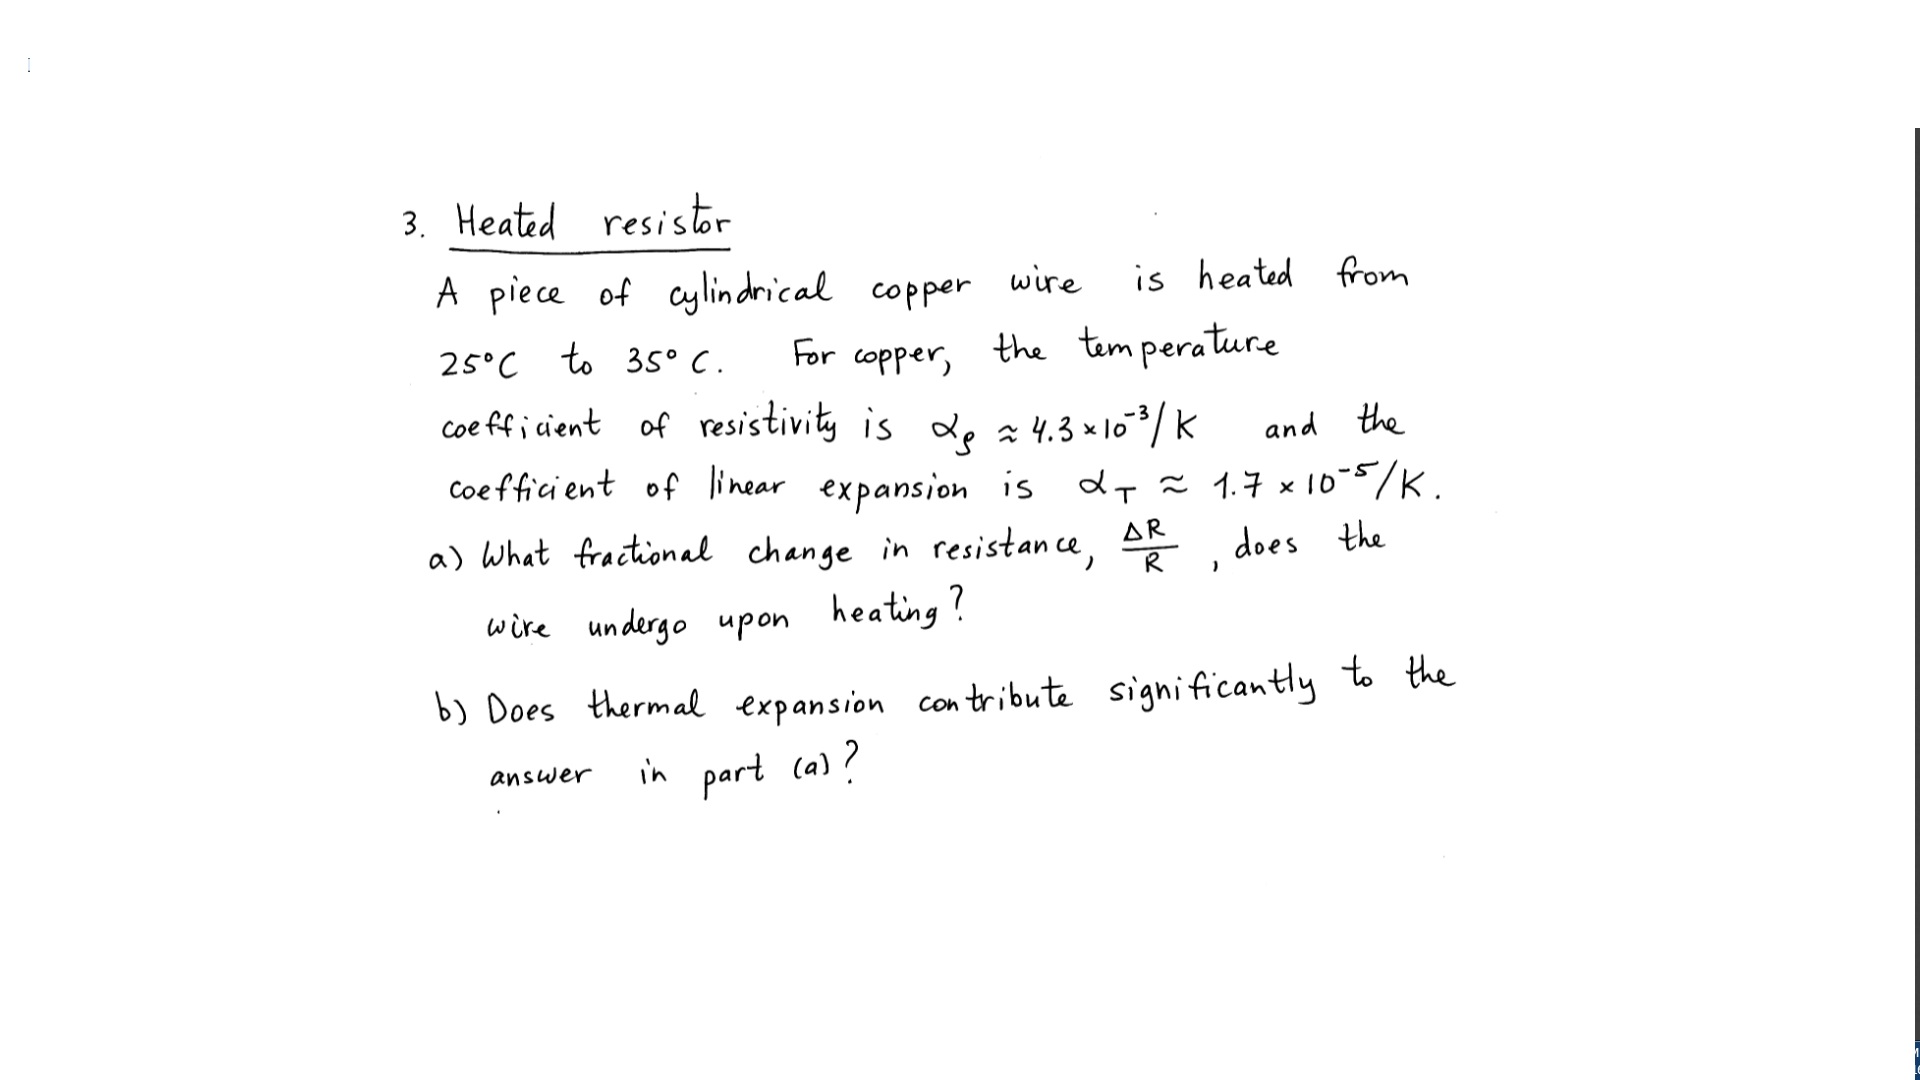 3. Heated resistor
A piece of cylindrical copper wire is heated from
25°C to 35°C. For copper, the temperature
coefficient of resistivity is αρ ≈ 4.3 × 10⁻³/K and the
coefficient of linear expansion is αT ≈ 1.7 × 10⁻⁵/K.
a) What fractional change in resistance, ΔR/R, does the
wire undergo upon heating?
b) Does thermal expansion contribute significantly to the
answer in part (a)?